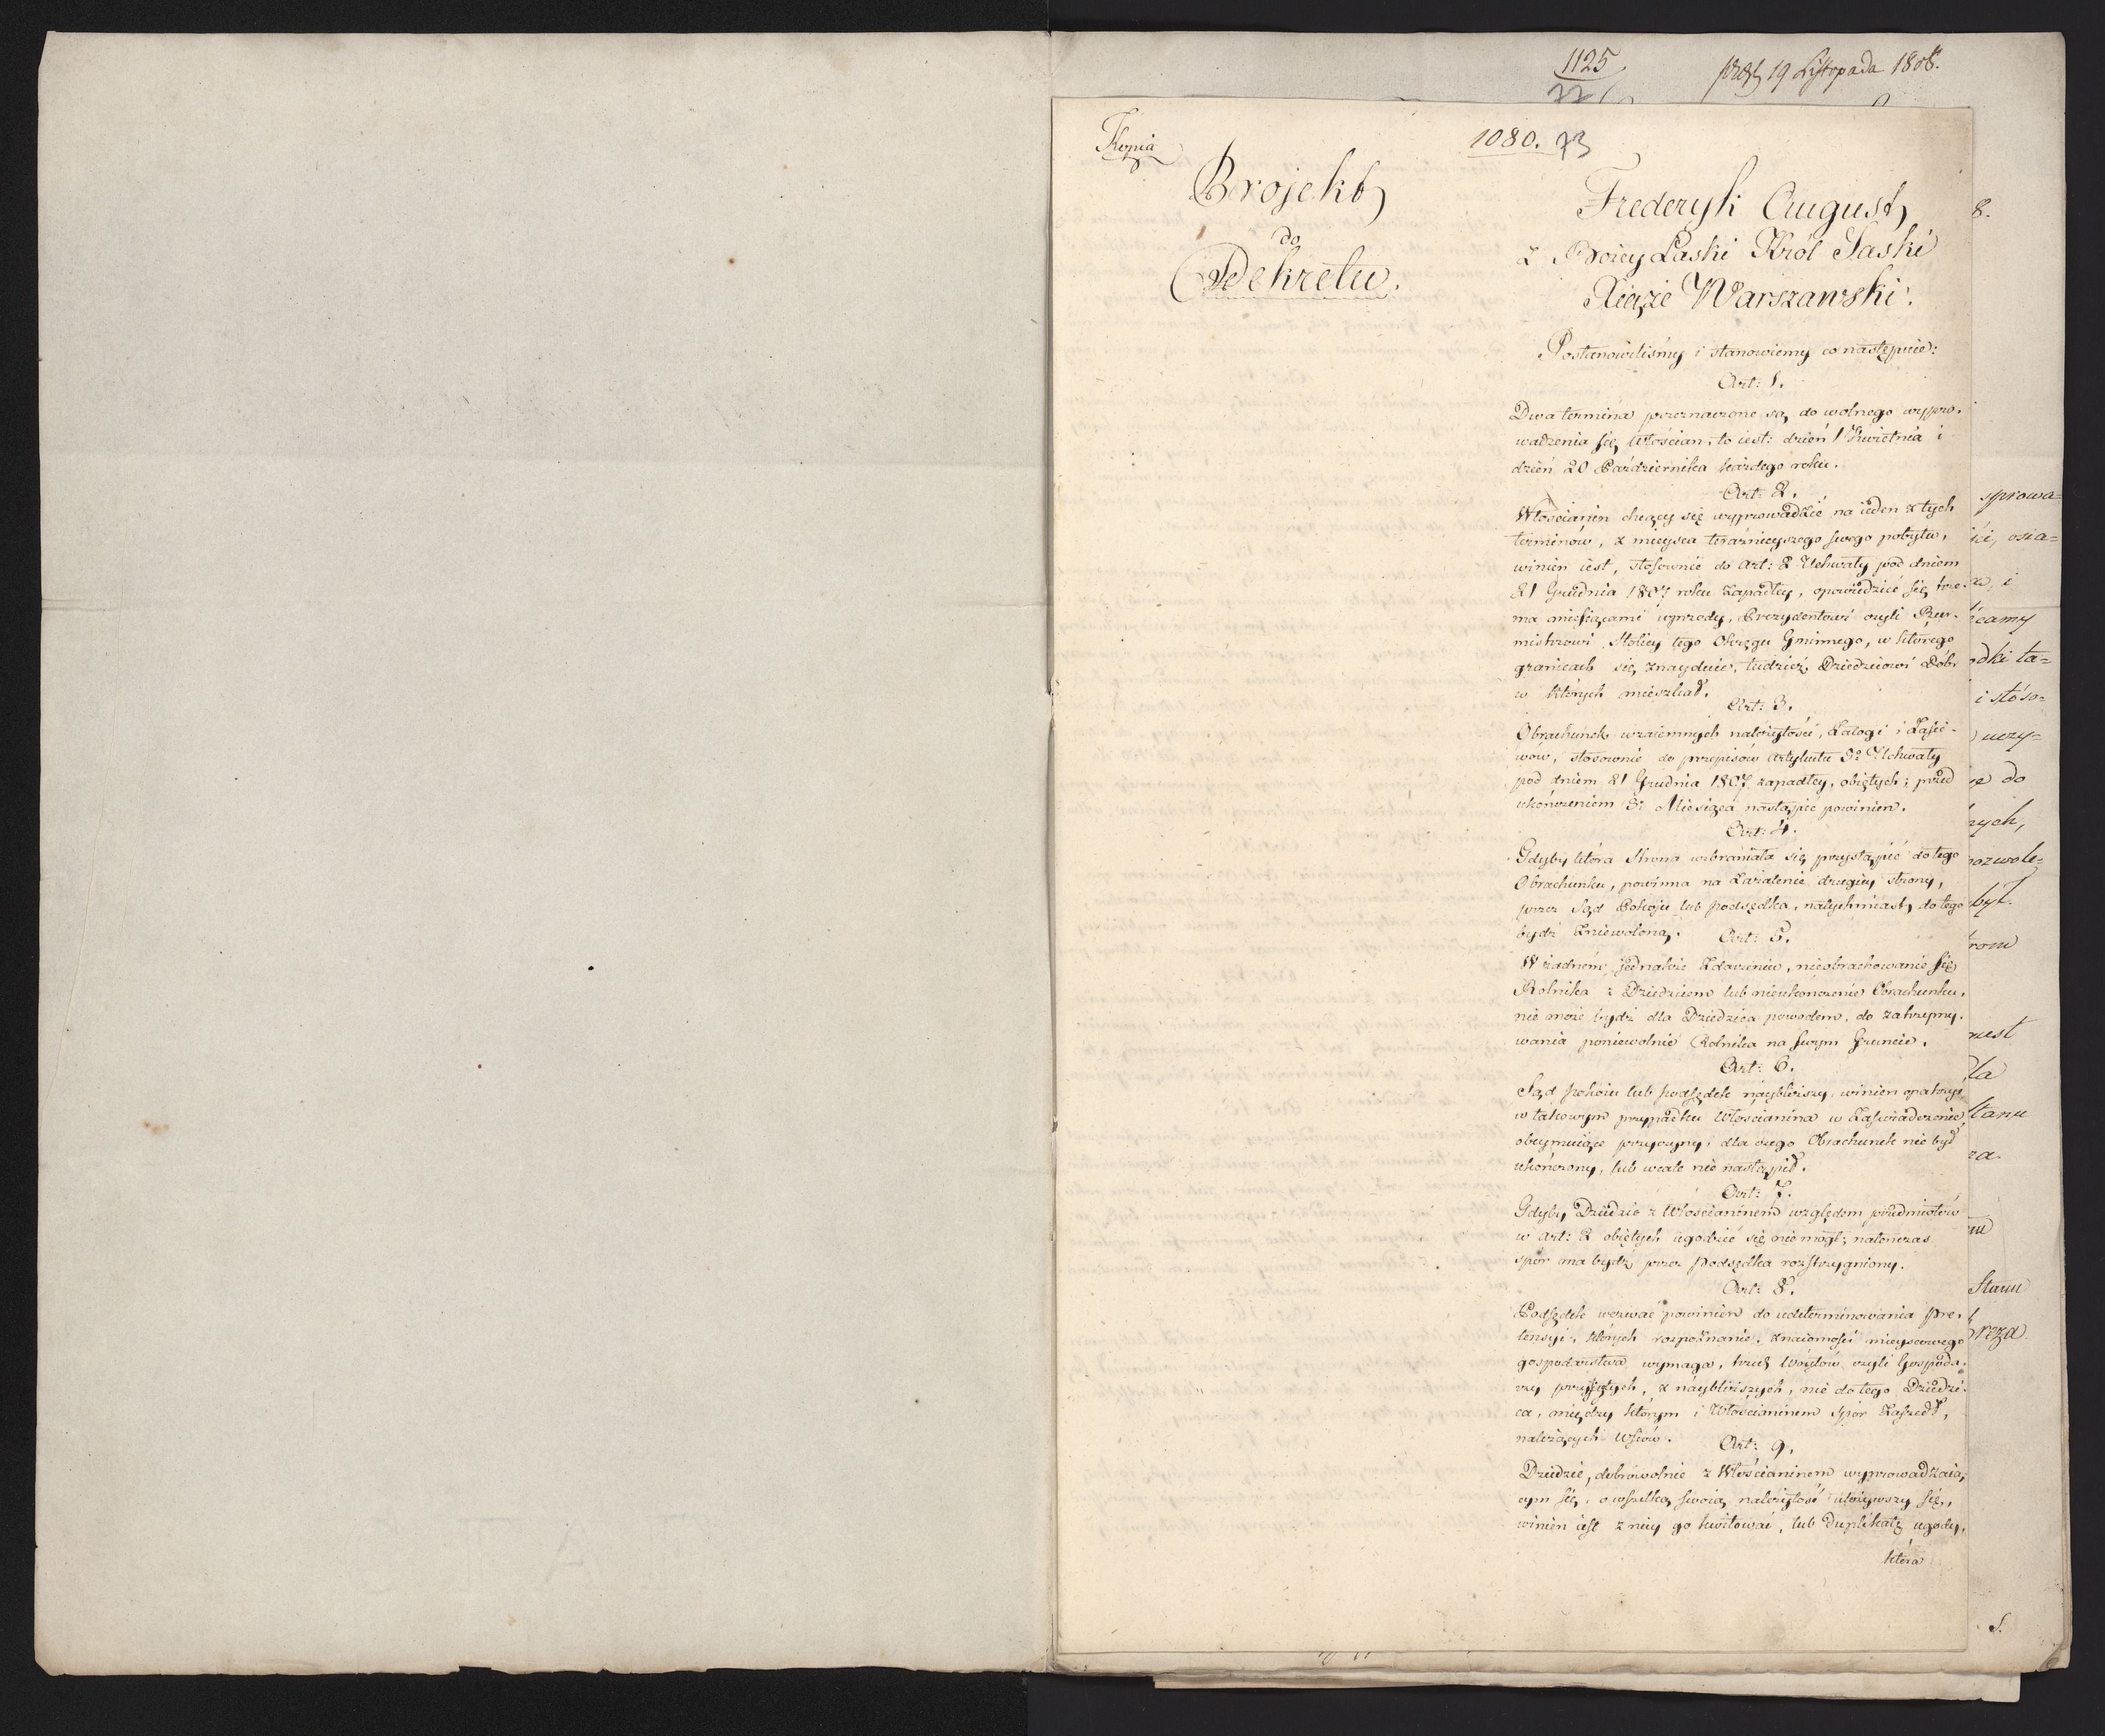 1125.
przz 19 Listopada 1808.
Kopia
1080. 73
Projekt
do
Dekretu.
Frederyk August,
z Bożey Łaski Król Saski
Xiąże Warszawski.
Postanowiliśmy i stanowiemy co następuie:
Art: 1.
Dwa termina przeznaczone są, do wolnego wypro-
wadzenia się Włościan, to iest: dzień 1 Kwietnia i
dzień 20 Października każdego roku.
Art: 2.
Włościanin chcący się wyprowadzić na ieden z tych
terminów, z mieysca teraźnieyszego swego pobytu,
winien iest, stosownie do Art: 2 Uchwały pod dniem
21 Grudnia 1807 roku zapadłey, opowiedzieć się trze-
ma miesiącami wprzody, Prezydentowi czyli Bur-
mistrzowi Stolicy tego Okręgu Gminnego, w którego
granicach się znayduie, tudzież Dziedzicowi Dóbr
w których mieszkał.
Art: 3.
Obrachunek wzaiemnych należytości, Załogi i Zasie-
wów, stosownie do przepisów Artykułu 3o Uchwały
pod dniem 21 Grudnia 1807 zapadłey, obiętych; przed
ukończeniem 3o Miesiąca nastąpić powinien.
Art: 4.
Gdyby która Strona wzbraniała się przystąpić do tego
Obrachunku, powinna na Zażalenie drugiey strony,
przez Sąd Pokoju lub podsędka, natychmiast, do tego
bydź zniewoloną.
Art: 5.
W żadnem jednakże Zdarzeniu, nieobrachowanie się
Rolnika z Dziedzicem lub nieukończenie Obrachunku,
nie może bydź dla Dziedzica powodem, do zatrzymy-
wania poniewolnie Rolnika na swym Gruncie.
Art: 6.
Sąd pokoiu lub podsędek naybliższy, winien opatrzyć
w takowym przypadku Włościanina w Zaświadczenie
obeymuiące przyczyny, dla czego Obrachunek nie był
ukończony, lub wcale nie nastąpił.
Art: 7.
Gdyby Dziedzic z Włościaninem względem przedmiotów
w Art: 2 obiętych ugodzić się nie mógł; natenczas
spór ma bydź przez Podsędka rozstrzygniony.
Art: 8.
Podsędek wezwać powinien do udeterminowania pre-
tensyi, których rozpoznanie, znaiomości mieyscowego
gospodarstwa wymaga, trzech Wóytów czyli Gospoda-
rzy przysięgłych, z naybliższych, nie do tego Dziedzi-
ca, między którym i Włościaninem spór Zaszedł,
należących Wsiów.
Art: 9.
Dziedzic, dobrowolnie z Włościaninem wyprowadzaią-
cym się, o wszelką swoią należytość ułożywszy się,
winien iest z niey go kwitować, lub Duplikatę ugody,
która
8.
sprowa=
ści, osia=
i
camy
odki ta=
i stoso=
uczy=
do
nych,
pozwole=
był.
rom
Stanu
Stanu
Preza
S.